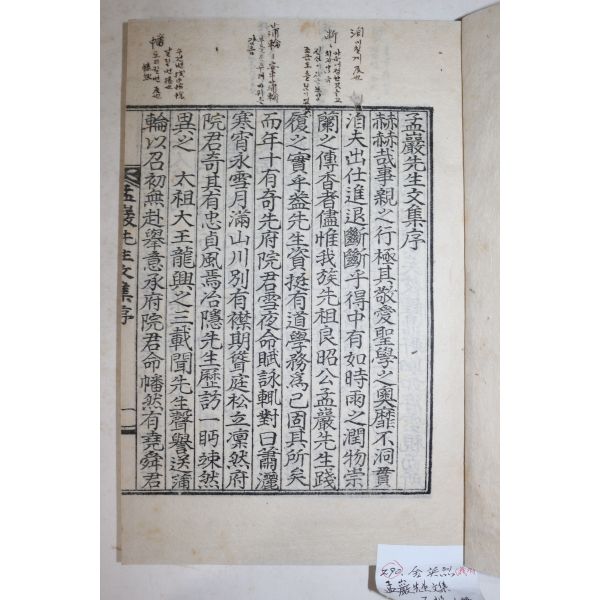 孟巖先生文集序
赫赫哉事親之行極其敬愛聖學之奧靡不洞貫
洎夫出仕進退斷斷乎得中有如時雨之潤物崇
蘭之傳香者儘惟我族先祖良昭公孟巖先生踐
履之實乎益先生資挺有道學務爲己固其所矣
而年十有奇先府院君雪夜命賦詠輒對曰蕭灑
寒宵氷雪月滿山川別有襟期聳庭松立凜然府
院君奇其有忠貞風焉冶隱先生歷訪一眄竦然
異之 太祖大王龍興之三載聞先生聲譽送蒲
輪以召初無赴擧意承府院君命幡然有堯舜君
孟巖先生文集序
一
洎
斷
蒲輪
幡
孟巖先生文集